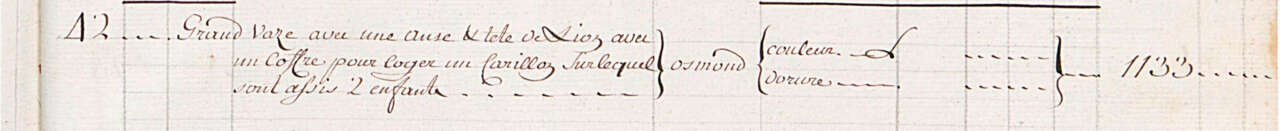 42 .... Grand Vaze avec une anse & tete de Lion avec
un Coffre pour loger un Carillon Sur lequel
sont assis 2 enfants
osmond
couleur
dorure
1133